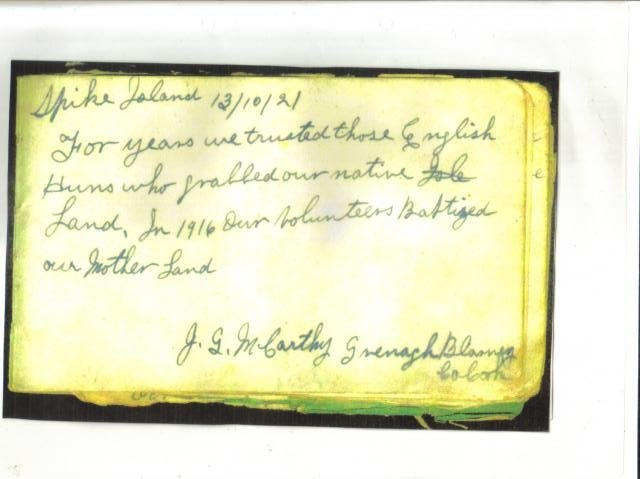 Spike Island 13/10/21
For years we trusted those English
Huns who grabbed our native Isle
Land, In 1916 Our Volunteers Baptized
our Mother Land
J. G. McCarthy Grenagh Blarney
Co Cork